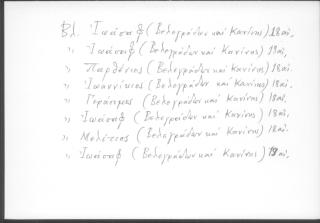 Βλ. Ἰωάσαφ (Βελεγράδων καί Κανίνης) 18 αἰ.
〃 Ἰωάσαφ (Βελεγράδων καί Κανίνης) 19 αἰ.
〃 Παρθένιος (Βελεγράδων καί Κανίνης) 18 αἰ.
〃 Ἰωαννίκιος (Βελεγράδων καί Κανίνης) 18 αἰ.
〃 Γεράσιμος (Βελεγράδων καί Κανίνης) 18 αἰ.
〃 Ἰωάσαφ (Βελεγράδων καί Κανίνης) 18 αἰ.
〃 Μελέτιος (Βελεγράδων καί Κανίνης) 18 αἰ.
〃 Ἰωάσαφ (Βελεγράδων καί Κανίνης) αἰ.